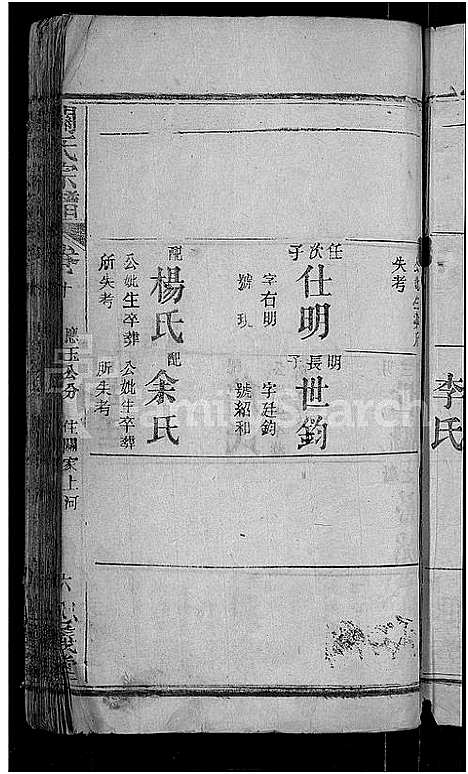 李氏
公妣生卒葬所
失考
任次子
仕明
字右明
號玖
配
楊氏
公妣生卒葬
所失考
明長子
世鈞
字廷鈞
號紹和
配
余氏
公妣生卒葬
所失考
關氏宗譜
卷十
應玉公分 住關家上河
六
忠義堂
FamilySearch